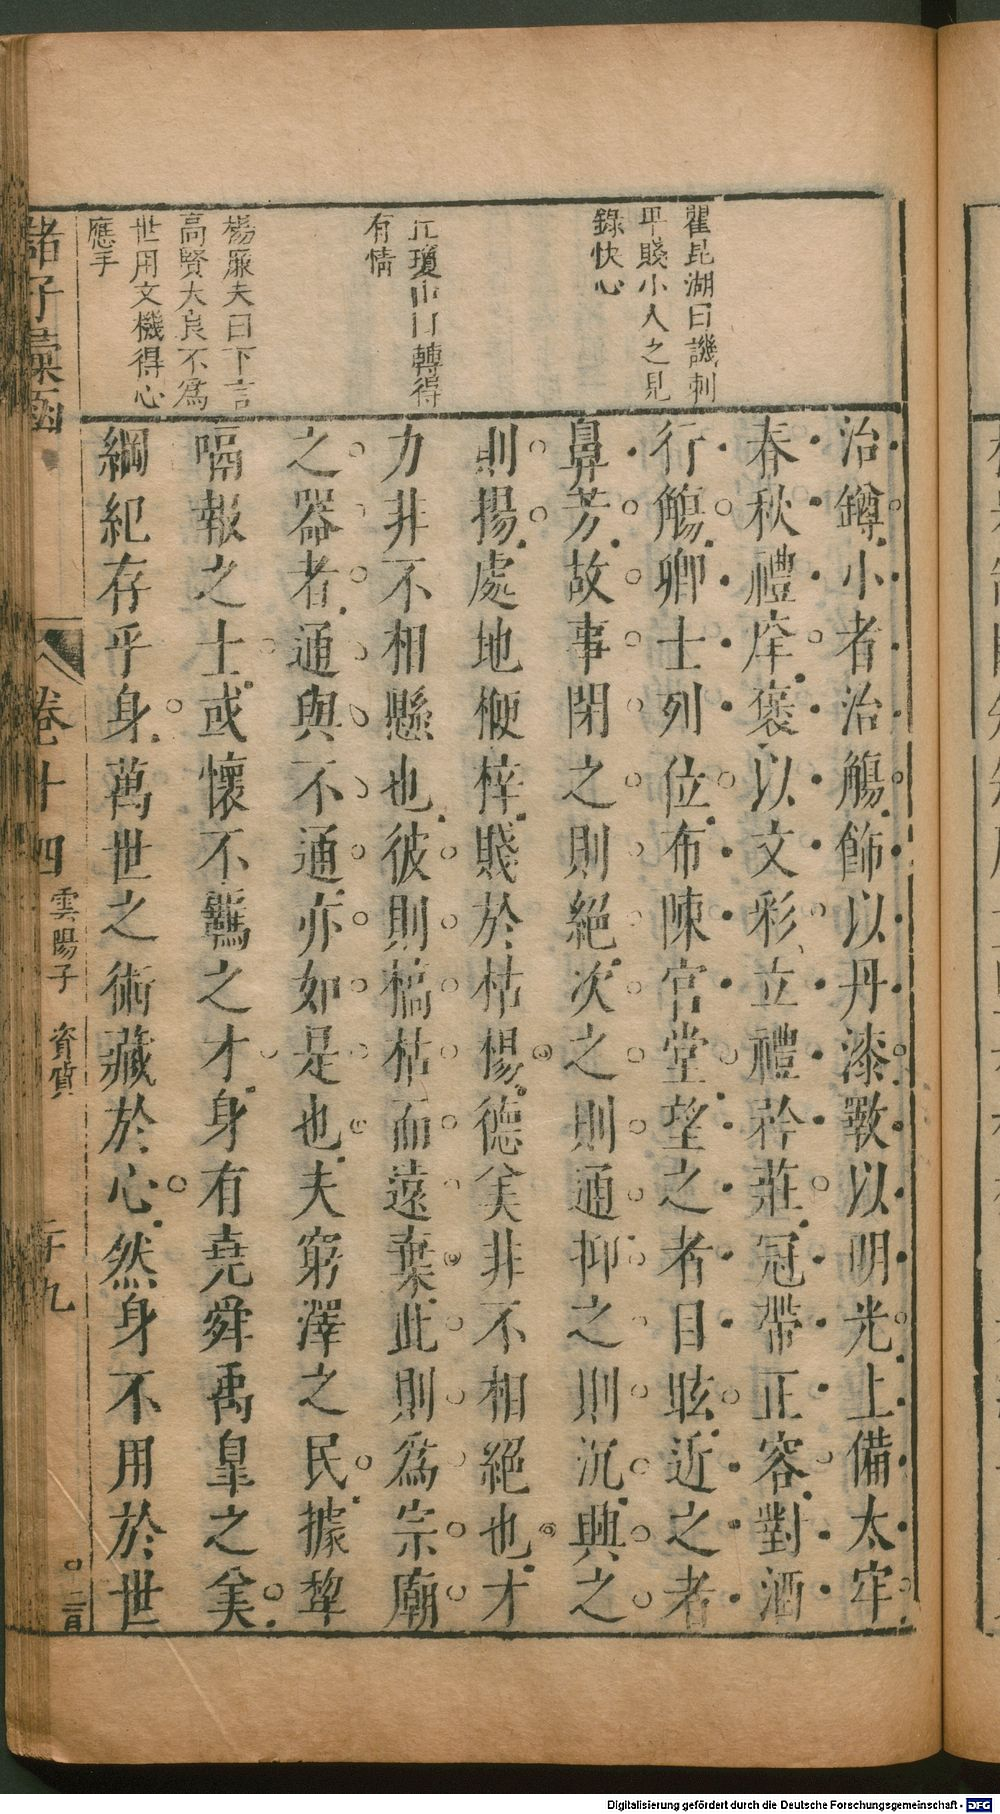 瞿昆湖曰譏刺
卑賤小人之見
錄快心
丘瓊山曰轉得
有情
楊廉夫曰下言
高賢大良不爲
世用文機得心
應手
治鐏小者治觴飾以丹漆斁以明光上備太牢
春秋禮庠褒以文彩立禮矜莊冠帶正容對酒
行觴卿士列位布陳宮堂望之者目眩近之者
鼻芳故事閉之則絕次之則通抑之則沉興之
則揚處地楩梓賤於枯楊德美非不相絕也才
力非不相懸也彼則槁枯而遠棄此則爲宗廟
之器者通與不通亦如是也夫窮澤之民據犂
嗝報之士或懷不羈之才身有堯舜禹臯之美
綱紀存乎身萬世之術藏於心然身不用於世
諸子彙函
卷十四
雲陽子 資質
二十九
二百
Digitalisierung gefördert durch die Deutsche Forschungsgemeinschaft - DFG